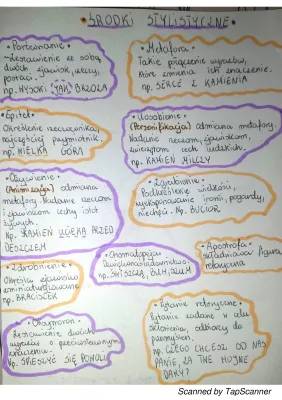 • ŚRODKI STYLISTYCZNE •
• Porównanie -
zestawienie ze sobą
dwóch zjawisk, rzeczy,
postaci.
np. WYSOKI JAK BRZOZA
• Epitet -
Określenie rzeczownika,
najczęściej przymiotnik.
np. WIELKA GÓRA
• Ożywienie -
(Animizacja) odmiana
metafory. Nadanie rzeczom
i zjawiskom cechy istot
żywych.
np. KAMIEŃ UCIEKA PRZED
DESZCZEM
• Zdrobnienie -
Określa zjawisko
np. BRACISZEK
• Oksymoron -
Zestawienie dwóch
wyrazów o przeciwstawnym
znaczeniu.
np. ŚPIESZYĆ SIĘ POWOLI
• Metafora -
Takie połączenie wyrazów,
które zmienia ich znaczenie.
np. SERCE Z KAMIENIA
• Uosobienie -
(Personifikacja) odmiana metafory.
Nadanie rzeczom, zjawiskom,
zwierzętom cech ludzkich.
np. KAMIEŃ MILCZY
• Zgrubienie -
Podkreślenie wielkości,
wyolbrzymienie ironii, pogardy,
niechęci. np. BUCIOR
• Onomatopeja -
Dźwiękonaśladownictwo.
np. ŚWISZCZĄ, BUM, SZUM
• Apostrofa -
składniowa figura
retoryczna
• Pytanie retoryczne -
Pytanie zadane w celu
skłonienia, odbiorcy do
przemyśleń.
np. CZEGO CHCESZ OD NAS
PANIE, ZA TWE HOJNE
DARY?
Scanned by TapScanner